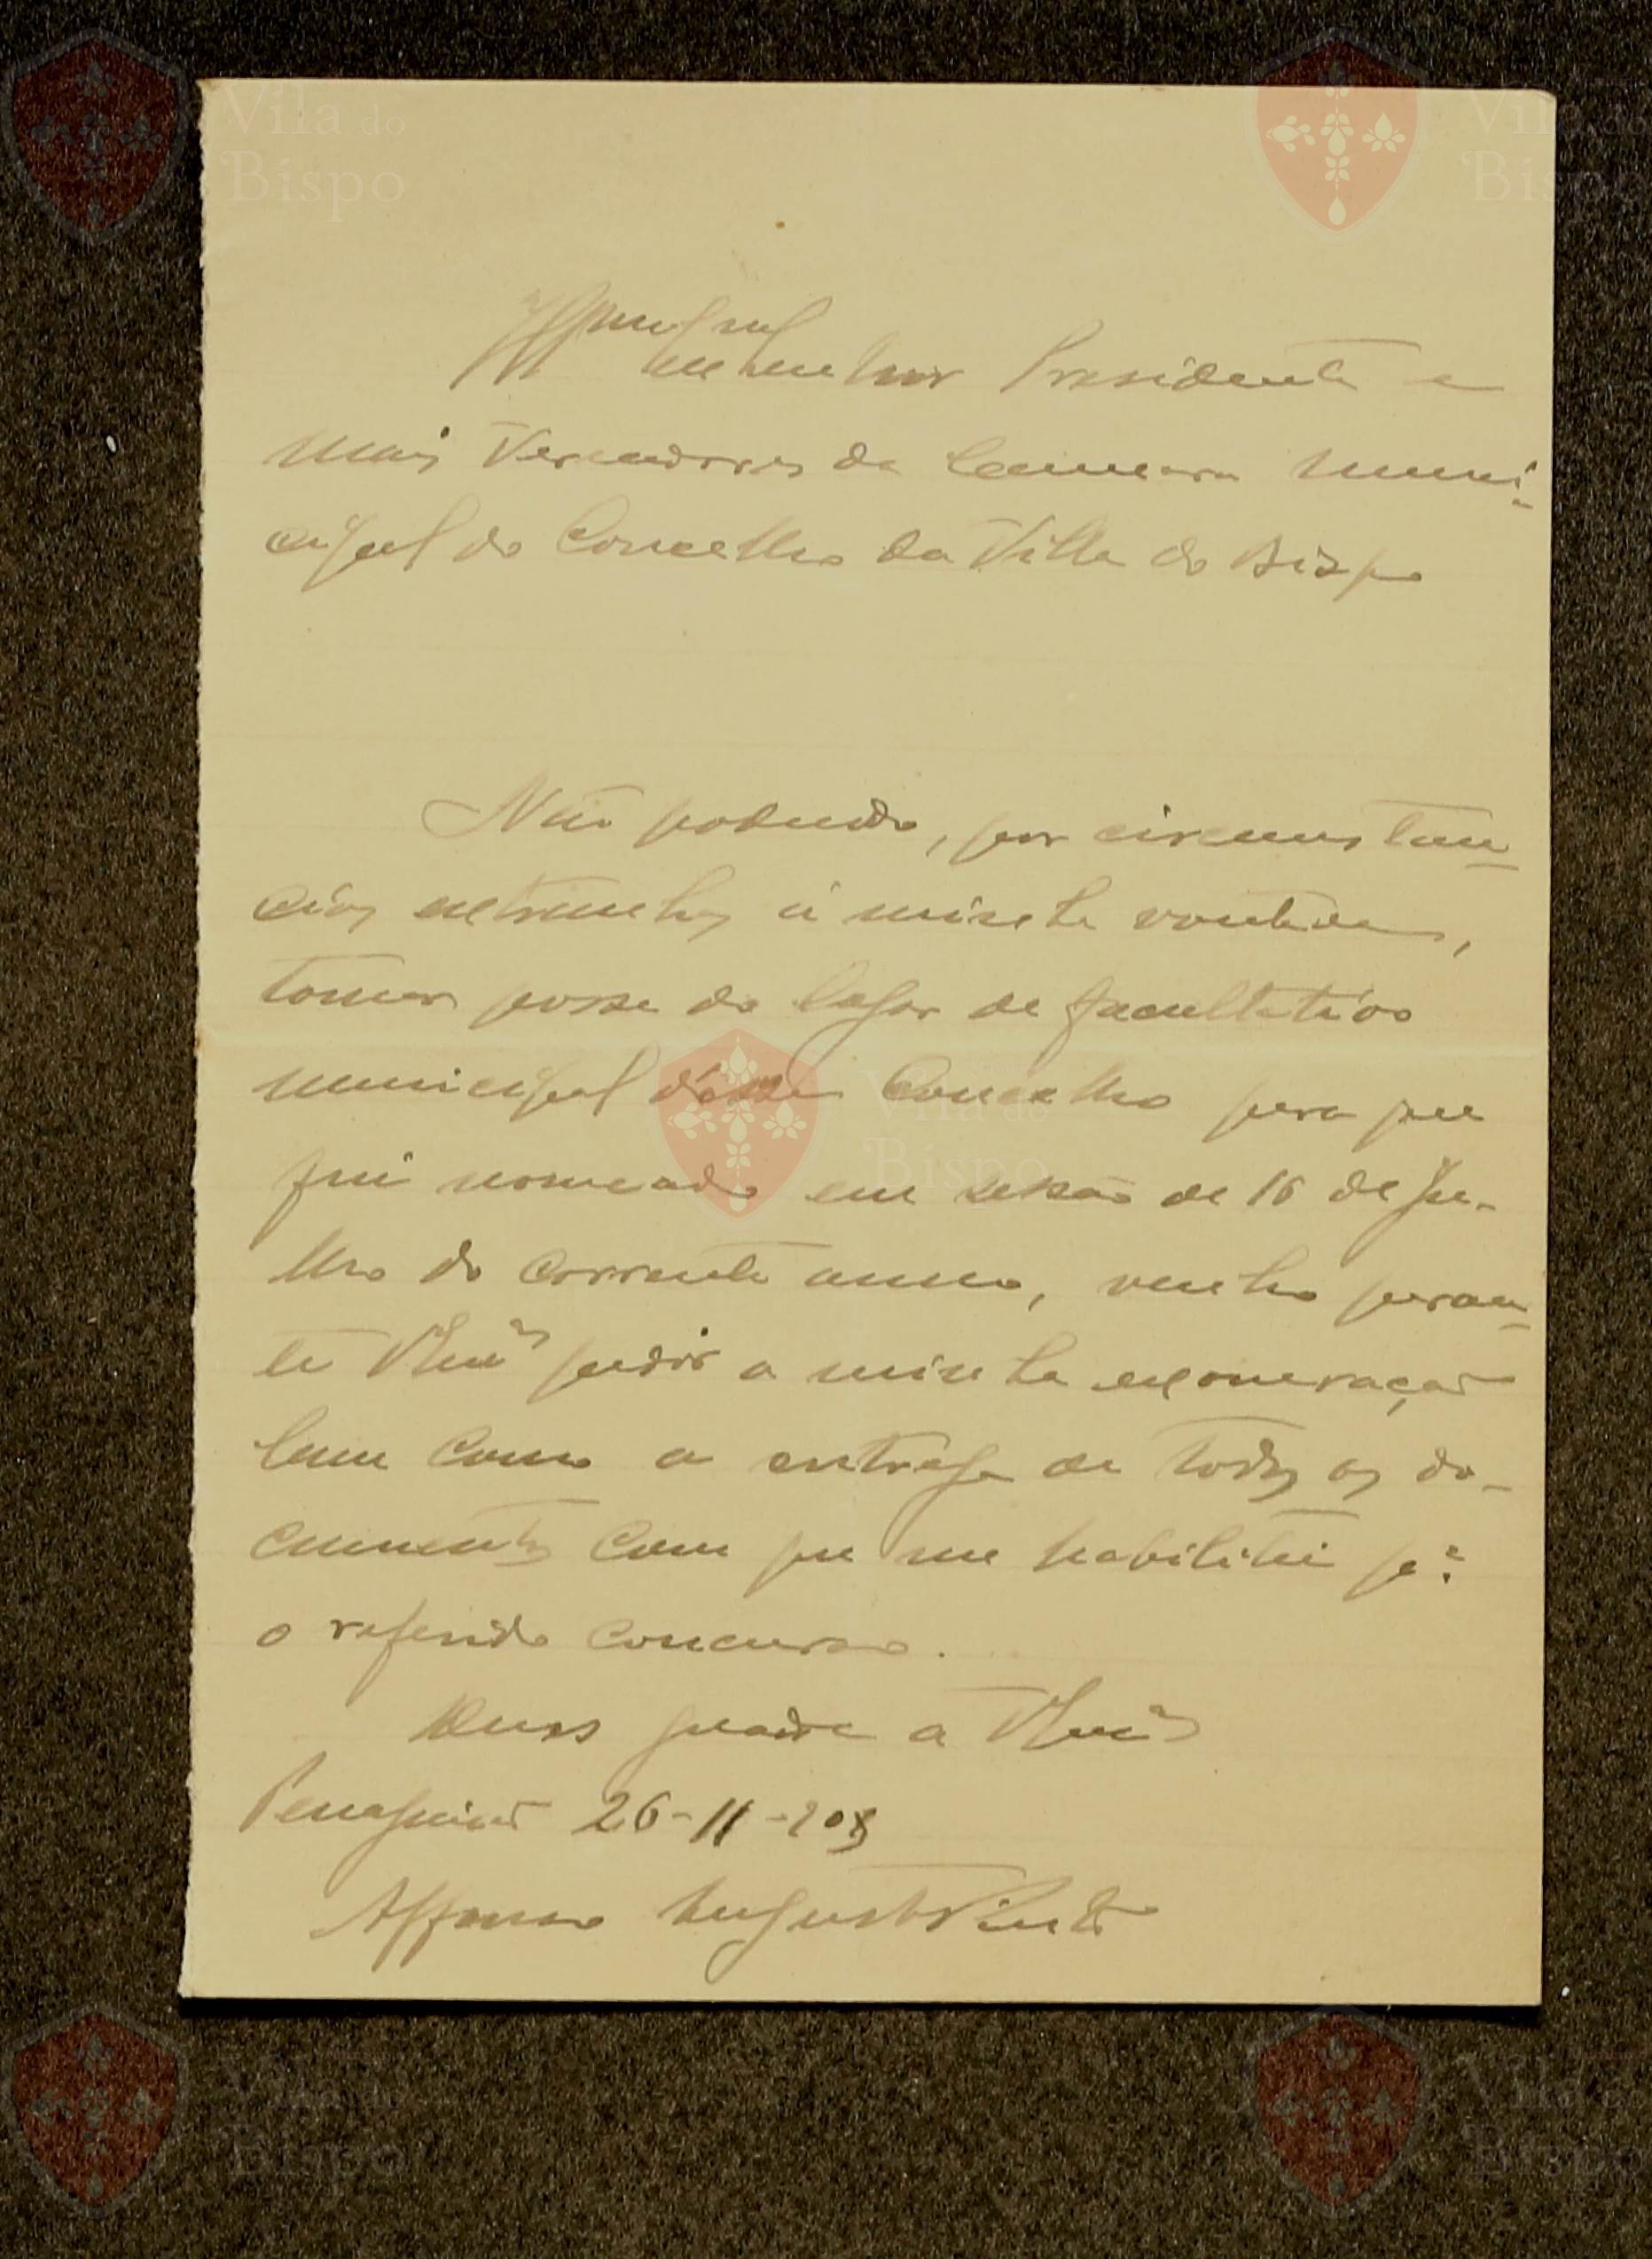 Senhor Presidente e
mais Vereadores da Camara Muni-
cipal do Concelho da Villa do Bispo
Não podendo, por circumstan-
cias extranhas á minha vontade,
tomar posse do logar de facultativo
municipal d'esse Concelho para que
fui nomeado em sessão de 16 de Ju-
lho do corrente anno, venho peran-
te pedir a minha exoneração
bem como a entrega de todos os do-
cumentos com que me habilitei pª
o referido concurso.
Deus guarde a
26-11-
Affonso Augusto Pinto
Vila do
Bispo
Vila do
Bispo
Vila do
Bispo
Vila do
Bispo
Vila do
Bispo